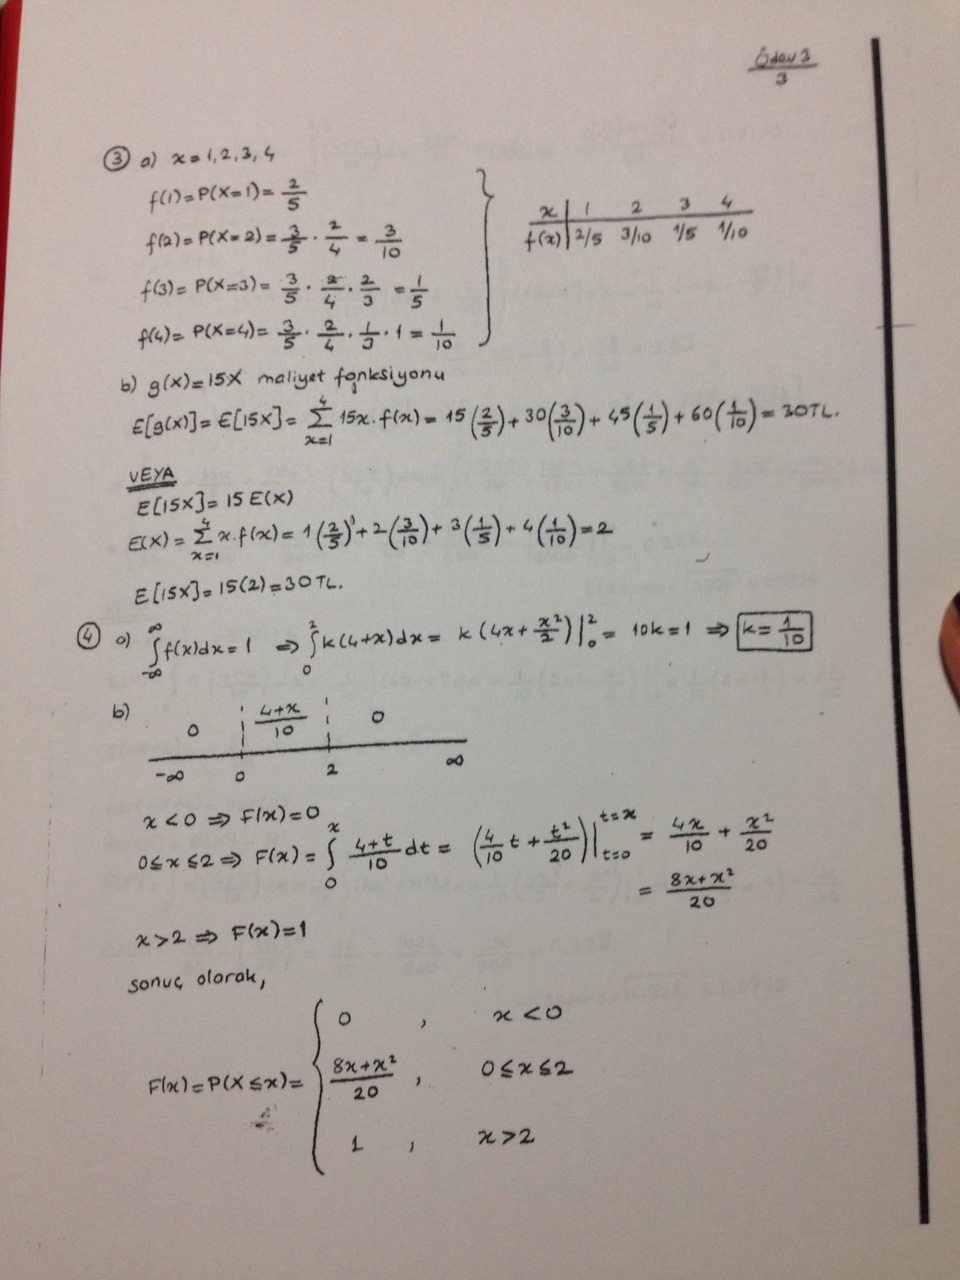 Ödev 3
3
③ a) x = 1, 2, 3, 4
f(1) = P(X=1) = 2/5
f(2) = P(X=2) = 3/5 · 2/4 = 3/10
f(3) = P(X=3) = 3/5 · 2/4 · 2/3 = 1/5
f(4) = P(X=4) = 3/5 · 2/4 · 1/3 · 1 = 1/10
x | 1 2 3 4
f(x) | 2/5 3/10 1/5 1/10
b) g(x) = 15X maliyet fonksiyonu
E[g(x)] = E[15X] = ∑_{x=1}^{4} 15x.f(x) = 15(2/5) + 30(3/10) + 45(1/5) + 60(1/10) = 30TL.
VEYA
E[15X] = 15 E(X)
E(X) = ∑_{x=1}^{4} x.f(x) = 1(2/5) + 2(3/10) + 3(1/5) + 4(1/10) = 2
E[15X] = 15(2) = 30TL.
④ a) ∫_{-∞}^{∞} f(x)dx = 1 ⇒ ∫_{0}^{2} k(4+x)dx = k(4x + x²/2)|_{0}^{2} = 10k = 1 ⇒ k = 1/10
b)
0 (4+x)/10 0
-∞ 0 2 ∞
x < 0 ⇒ F(x) = 0
0 ≤ x ≤ 2 ⇒ F(x) = ∫_{0}^{x} (4+t)/10 dt = (4/10 t + t²/20)|_{t=0}^{t=x} = 4x/10 + x²/20
= (8x+x²)/20
x > 2 ⇒ F(x) = 1
sonuç olarak,
0 , x < 0
F(x) = P(X ≤ x) = { (8x+x²)/20 , 0 ≤ x ≤ 2
1 , x > 2